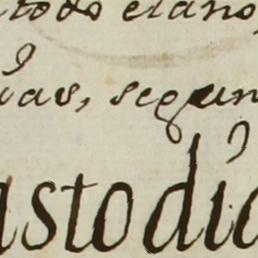 todo el año,
ias, segun
astodia